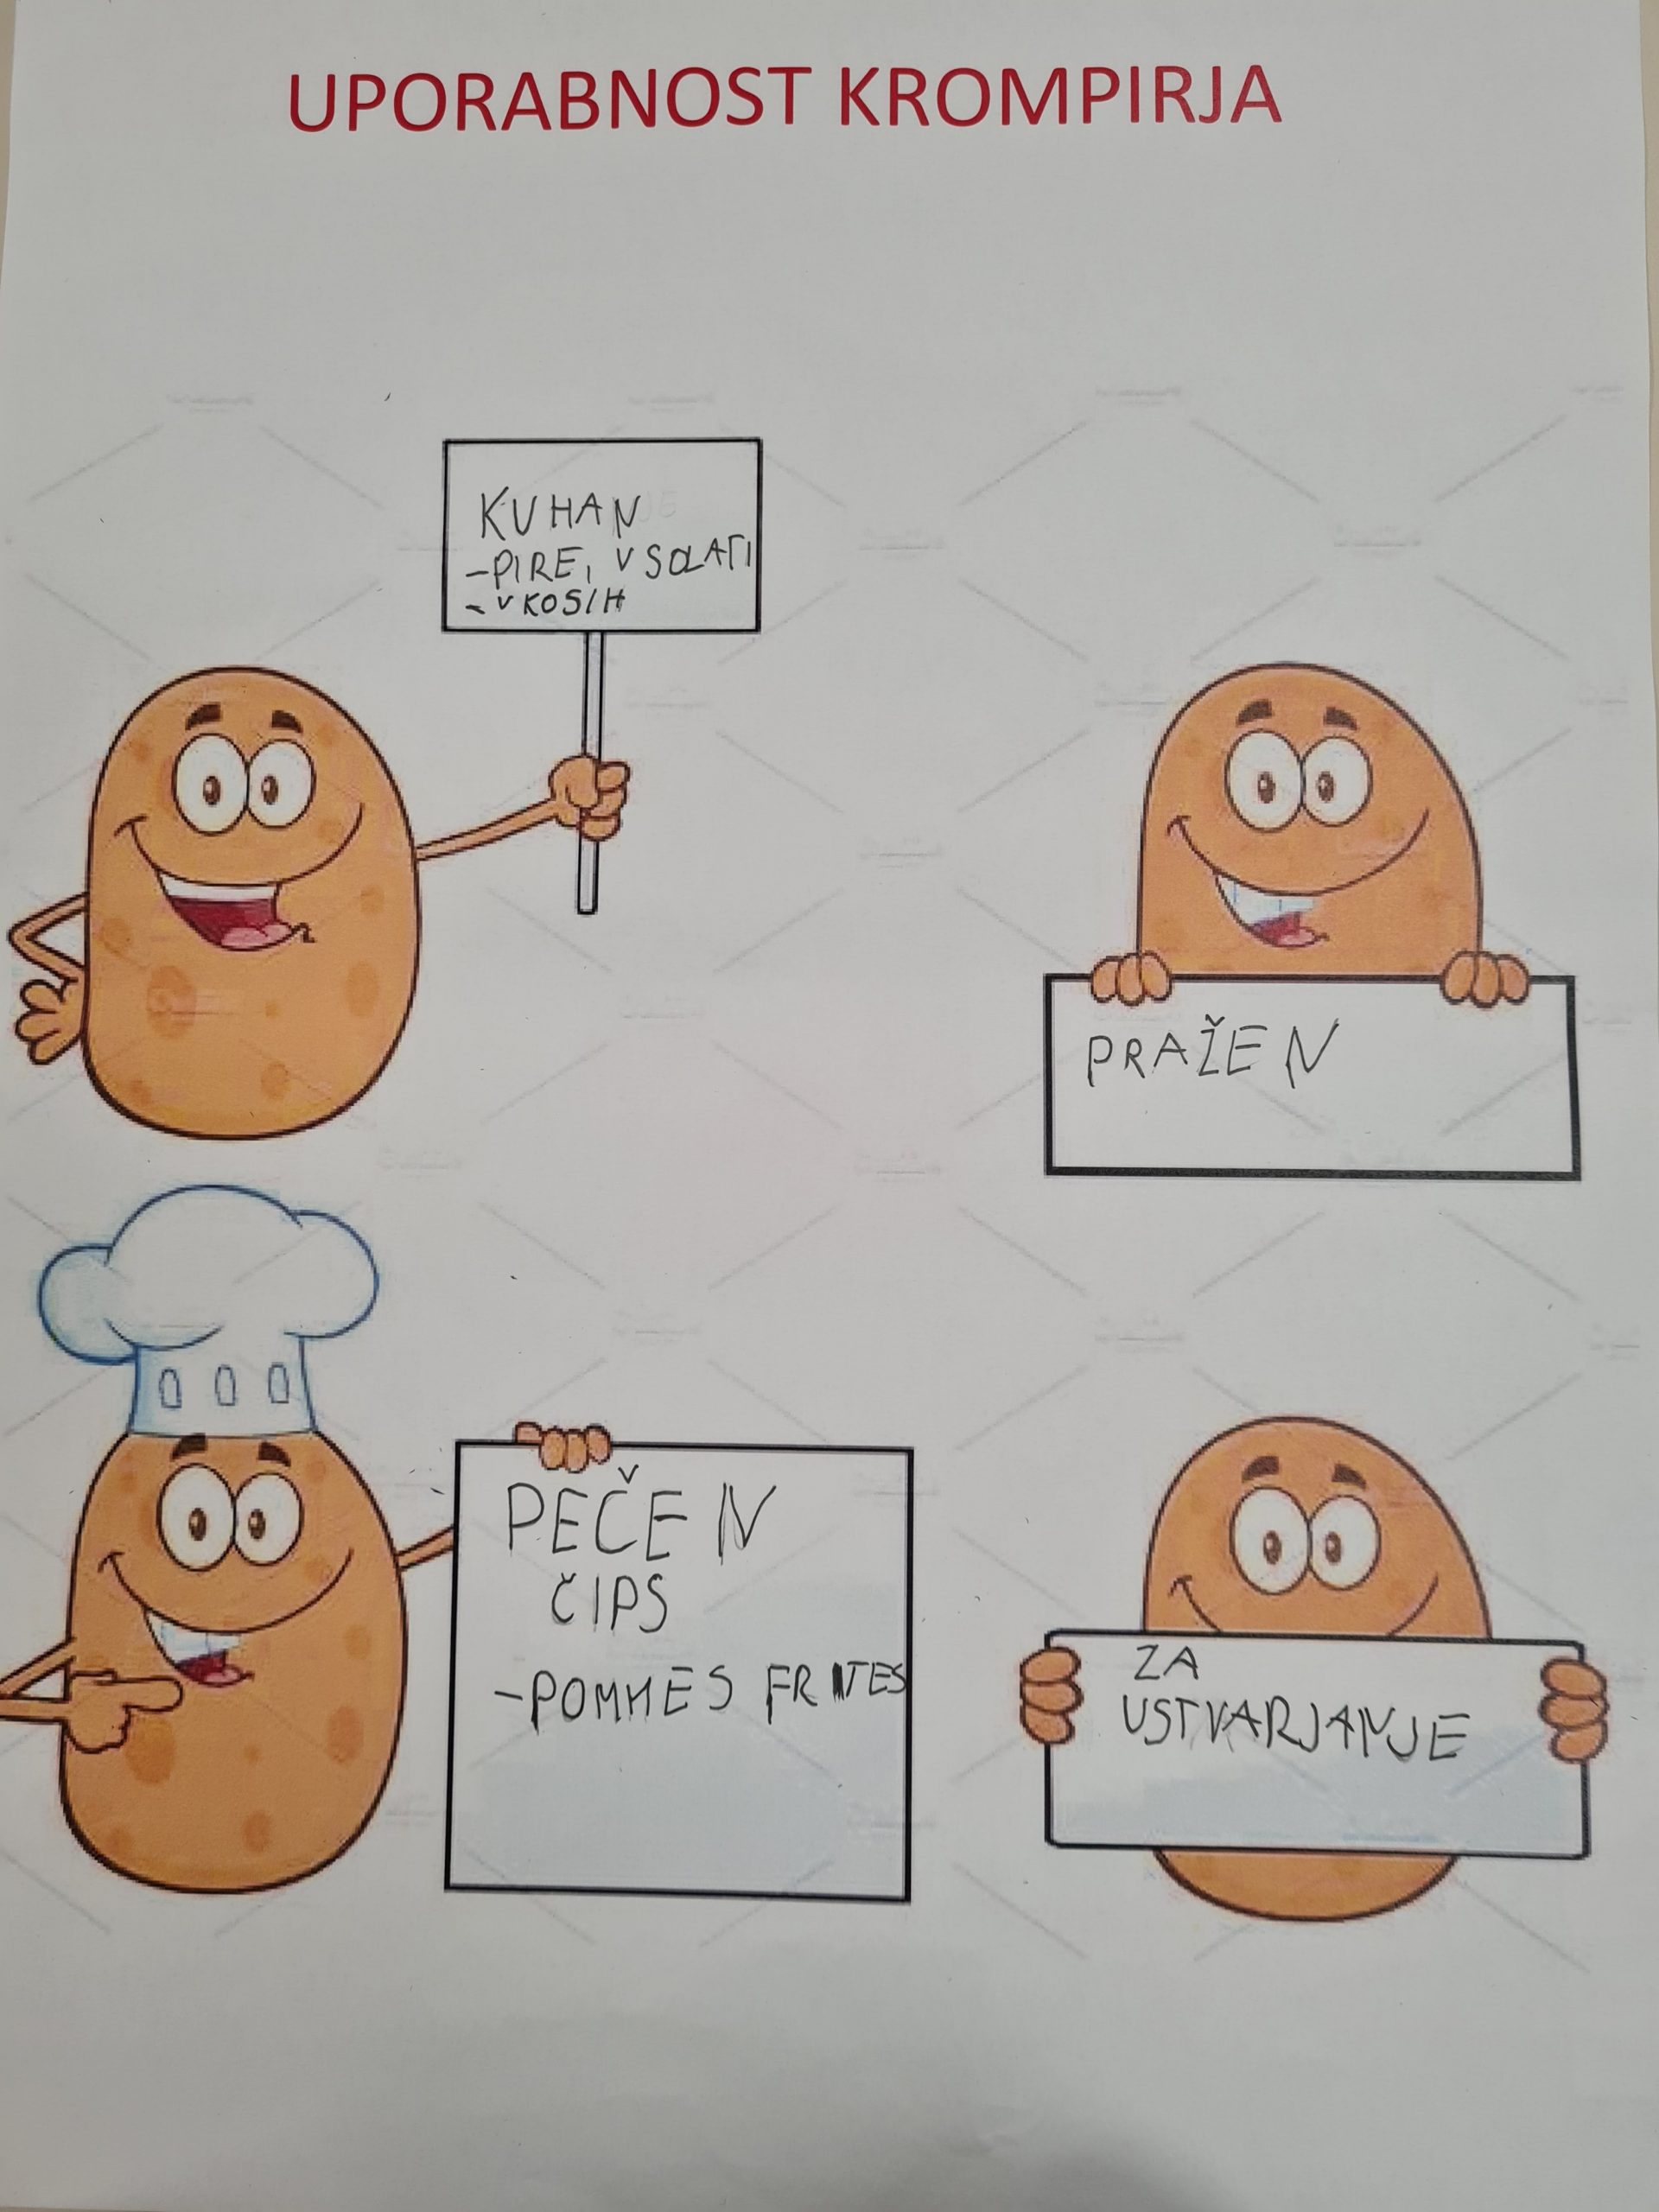 UPORABNOST KROMPIRJA
KUHAN
-PIRE, V SOLATI
- V KOSIH
PRAŽEN
PEČEN
ČIPS
-POMMES FRITES
ZA
USTVARJANJE